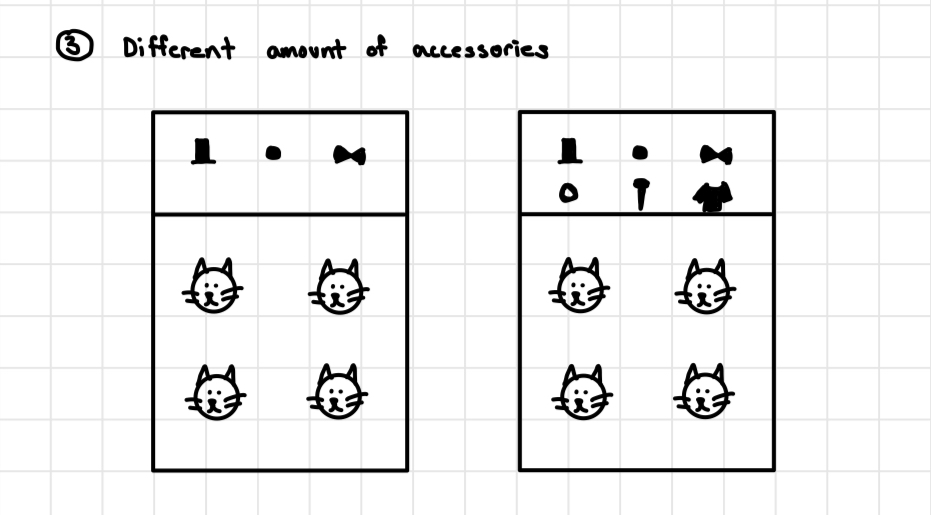 ③ Different amount of accessories